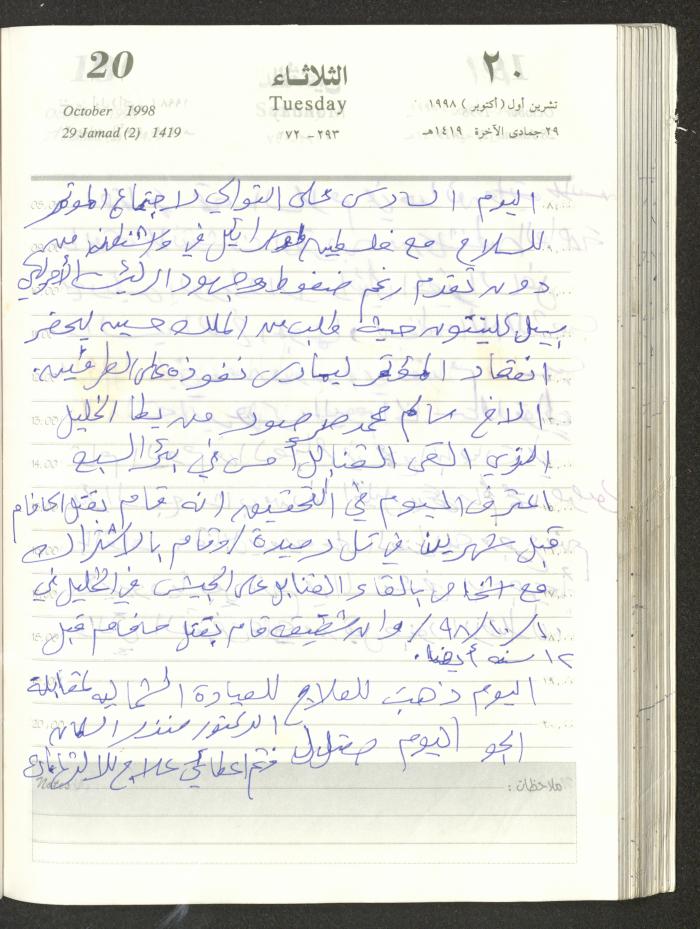 20
الثلاثاء
٢٠
October 1998
Tuesday
تشرين أول (أكتوبر) ١٩٩٨
29 Jamad (2) 1419
٢٩٣-٧٢
٢٩ جمادى الآخرة ١٤١٩هـ
اليوم السادس على التوالي لاجتماع المؤتمر
للسلام مع فلسطين وإسرائيل في واشنطن من
دون تقدم رغم ضغوط وجهود الرئيس الأمريكي
بيل كلينتون حيث طلب من الملك حسين ليحضر
انعقاد المؤتمر ليمارس نفوذه على الطرفين.
الاخ سالم محمد صرصور من يطا الخليل
الذي القى القنابل أمس في بئر السبع
اعترف اليوم في التحقيق انه قام بقتل الحاخام
قبل شهرين في تل رميدة / وقام بالاشتراك
مع اشخاص بالقاء القنابل على الجيش في الخليل في
/٩٨/١٠/١ وان شقيقه قام بقتل حاخام قبل
١٢ سنه أيضا.
اليوم ذهبت للعلاج للعيادة الشماليه لمقابلة
الدكتور منذر
الجو اليوم
فتم اعطائي علاج
Notes
ملاحظات :